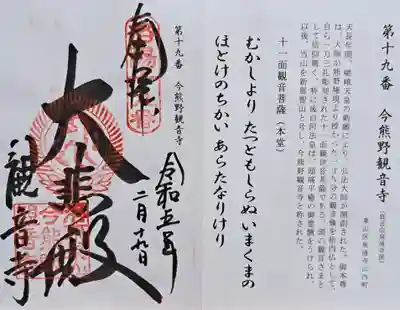 第十九番　今熊野観音寺
東山区泉涌寺山内町
天長年間、嵯峨天皇の勅願により、弘法大師が開創された。御本尊
は、大師が熊野権現より授かった一寸八分の観音像を胎内仏として、
自ら一刀三礼彫刻された十一面観世音菩薩である。頭の観音さまと
して信仰篤く、特に後白河法皇は、頭痛平癒の御霊験をうけられ、
以後、当山を新那智山と号し、今熊野観音寺と称された。
十一面観音菩薩（本堂）
むかしより　たつともしらぬ　いまくまの
ほとけのちかい　あらたなりけり
第十九番　今熊野観音寺
奉拝
大悲殿
観音寺
令和五年
二月十九日